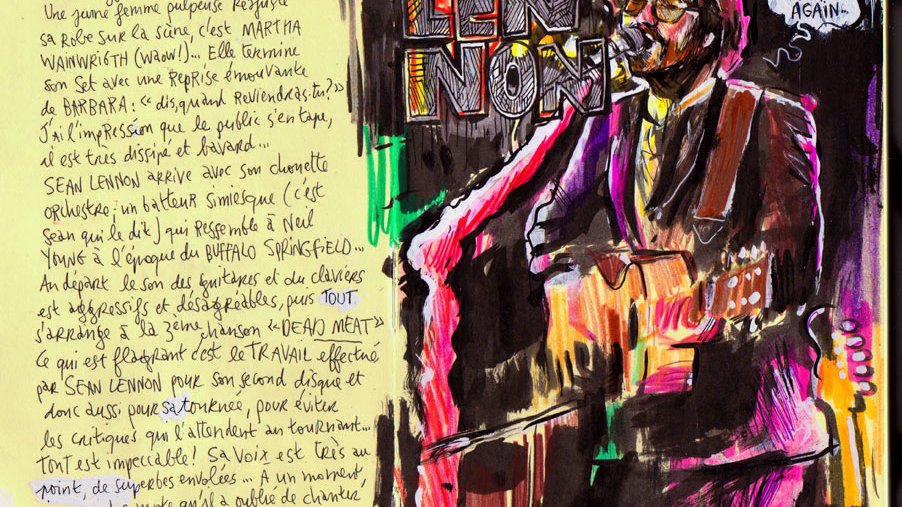 Une jeune femme pulpeuse réajuste
sa robe sur la scène, c'est MARTHA
WAINWRIGTH (waow!)... Elle termine
son set avec une reprise émouvante
de BARBARA : « dis, quand reviendras-tu ? »
J'ai l'impression que le public s'en tape,
il est très dissipé et bavard...
SEAN LENNON arrive avec son chouette
orchestre : un batteur simiesque (c'est
Sean qui le dit) qui ressemble à Neil
YOUNG à l'époque du BUFFALO SPRINGFIELD...
Au départ le son des guitares et du claviers
est aggressifs et désagréables, puis TOUT
s'arrange à la 3ème chanson « DEAD MEAT »
Ce qui est flagrant c'est le TRAVAIL effectué
par SEAN LENNON pour son second disque et
donc aussi pour sa tournée, pour éviter
les critiques qui l'attendent au tournant...
TOUT est impeccable ! Sa voix est très au
point, de superbes envolées... À un moment,
qu'il a oublié de chanter
LEN
NON
AGAIN...